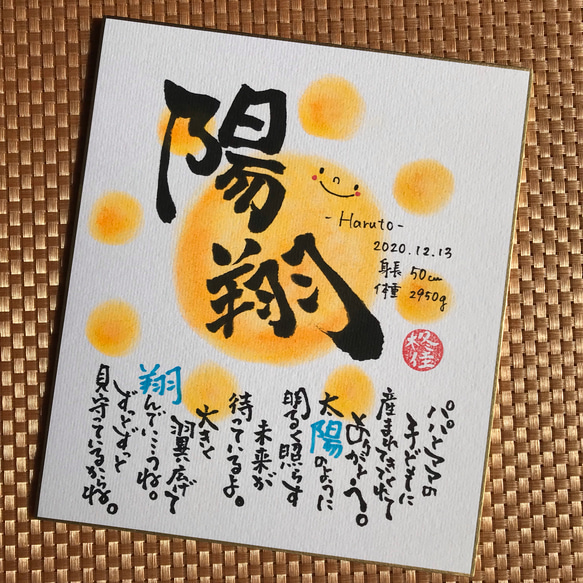 陽翔
- Haruto -
2020.12.13
身長 50cm
体重 2950g
パパとママの
子どもに
産まれてきてくれて
ありがとう。
太陽のように
明るく照らす
未来が
待っているよ。
大きく
羽広げて
翔んでいこうね。
ずっとずっと
見守っているからね。